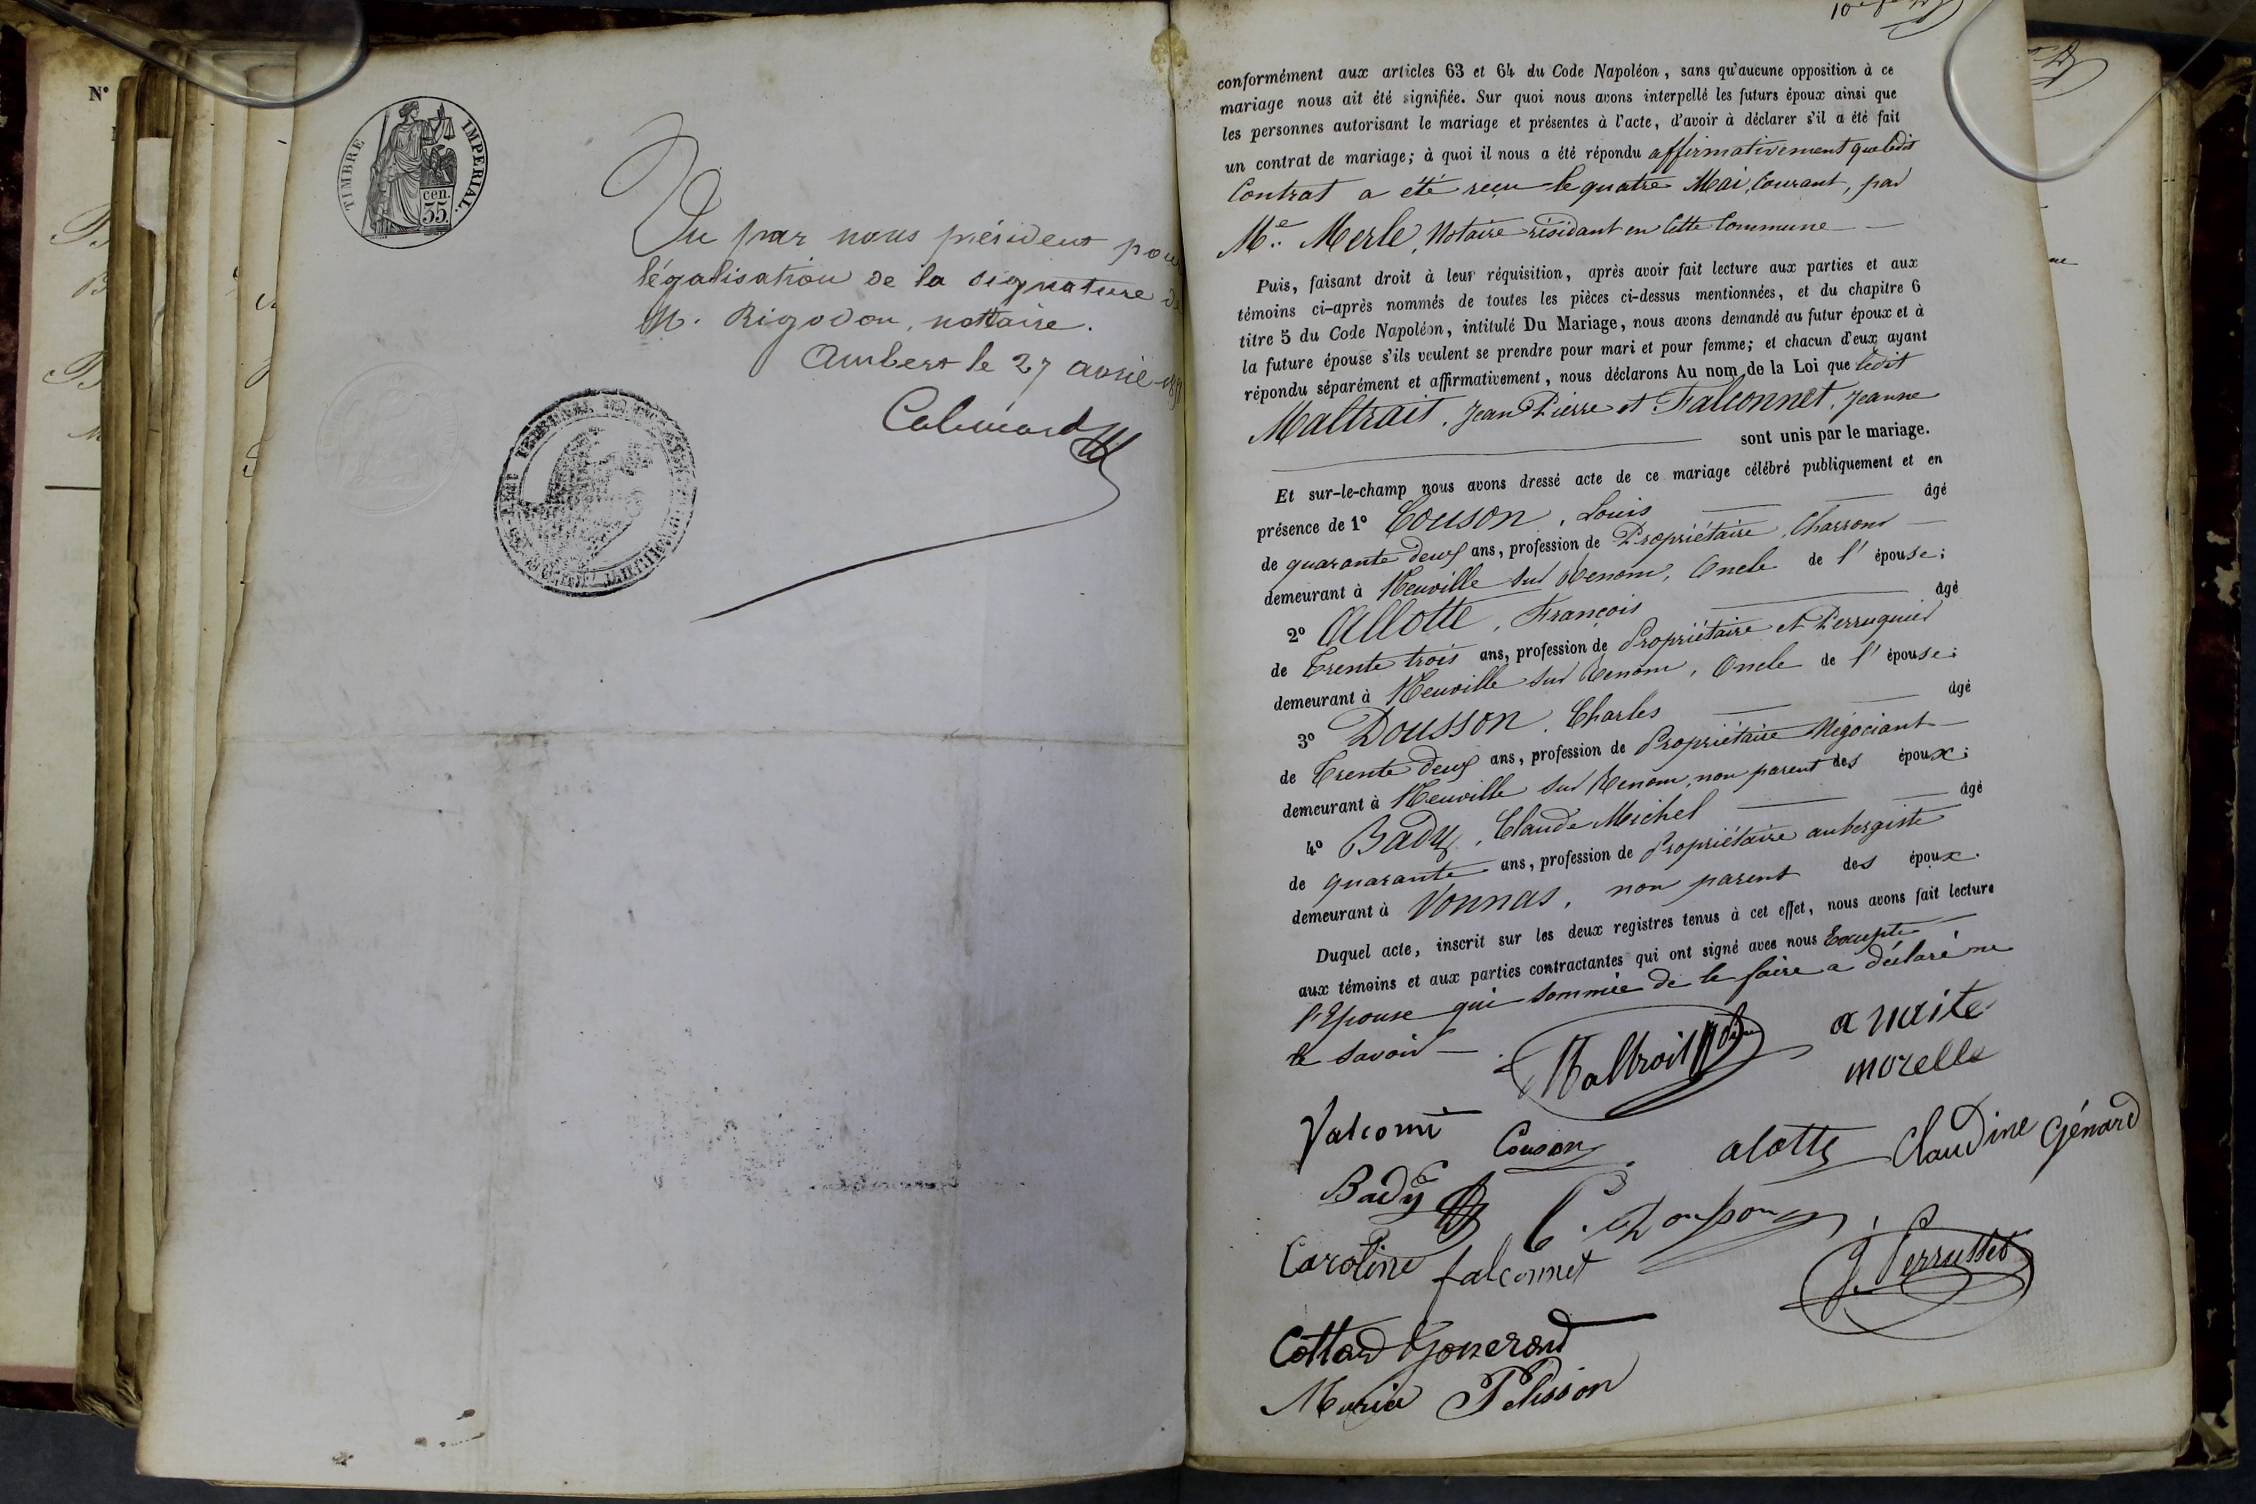 N°
TIMBRE IMPERIAL.
cen.
35.
Vu par nous président pour
légalisation de la signature de
M. Rigodon, nottaire.
Ambert le 27 avril
Calemard
conformément aux articles 63 et 64 du Code Napoléon, sans qu'aucune opposition à ce
mariage nous ait été signifiée. Sur quoi nous avons interpellé les futurs époux ainsi que
les personnes autorisant le mariage et présentes à l'acte, d'avoir à déclarer s'il a été fait
un contrat de mariage; à quoi il nous a été répondu affirmativement que ledit
Contrat a été reçu le quatre Mai, Courant, par
Me. Merle, Notaire résidant en Cette Commune
Puis, faisant droit à leur réquisition, après avoir fait lecture aux parties et aux
témoins ci-après nommés de toutes les pièces ci-dessus mentionnées, et du chapitre 6
titre 5 du Code Napoléon, intitulé Du Mariage, nous avons demandé au futur époux et à
la future épouse s'ils veulent se prendre pour mari et pour femme; et chacun d'eux ayant
répondu séparément et affirmativement, nous déclarons Au nom de la Loi que ledit
Maltrait, Jean Pierre et Falconnet, Jeanne
sont unis par le mariage.
Et sur-le-champ nous avons dressé acte de ce mariage célébré publiquement et en
présence de 1° Couson, Louis âgé
de quarante deux ans, profession de Propriétaire, Charron
demeurant à Neuville sur Renom, Oncle de l'épouse;
2° Allotte, François âgé
de Trente trois ans, profession de Propriétaire et Perruquier
demeurant à Neuville sur Renom, Oncle de l'épouse;
3° Dousson, Charles âgé
de Trente deux ans, profession de Propriétaire Négociant
demeurant à Neuville sur Renom, non parent des époux;
4° Bady, Claude Michel âgé
de quarante ans, profession de Propriétaire aubergiste
demeurant à Vonnas, non parent des époux.
Duquel acte, inscrit sur les deux registres tenus à cet effet, nous avons fait lecture
aux témoins et aux parties contractantes qui ont signé avec nous Excepté
l'Epouse qui sommée de le faire a déclaré ne
le savoir
Maltrait
morelle
Couson alotte Claudine Génard
Bady C. Dousson
Caroline falconnet J. Perrusset
Cottard Gonerand
Maria Pelisson